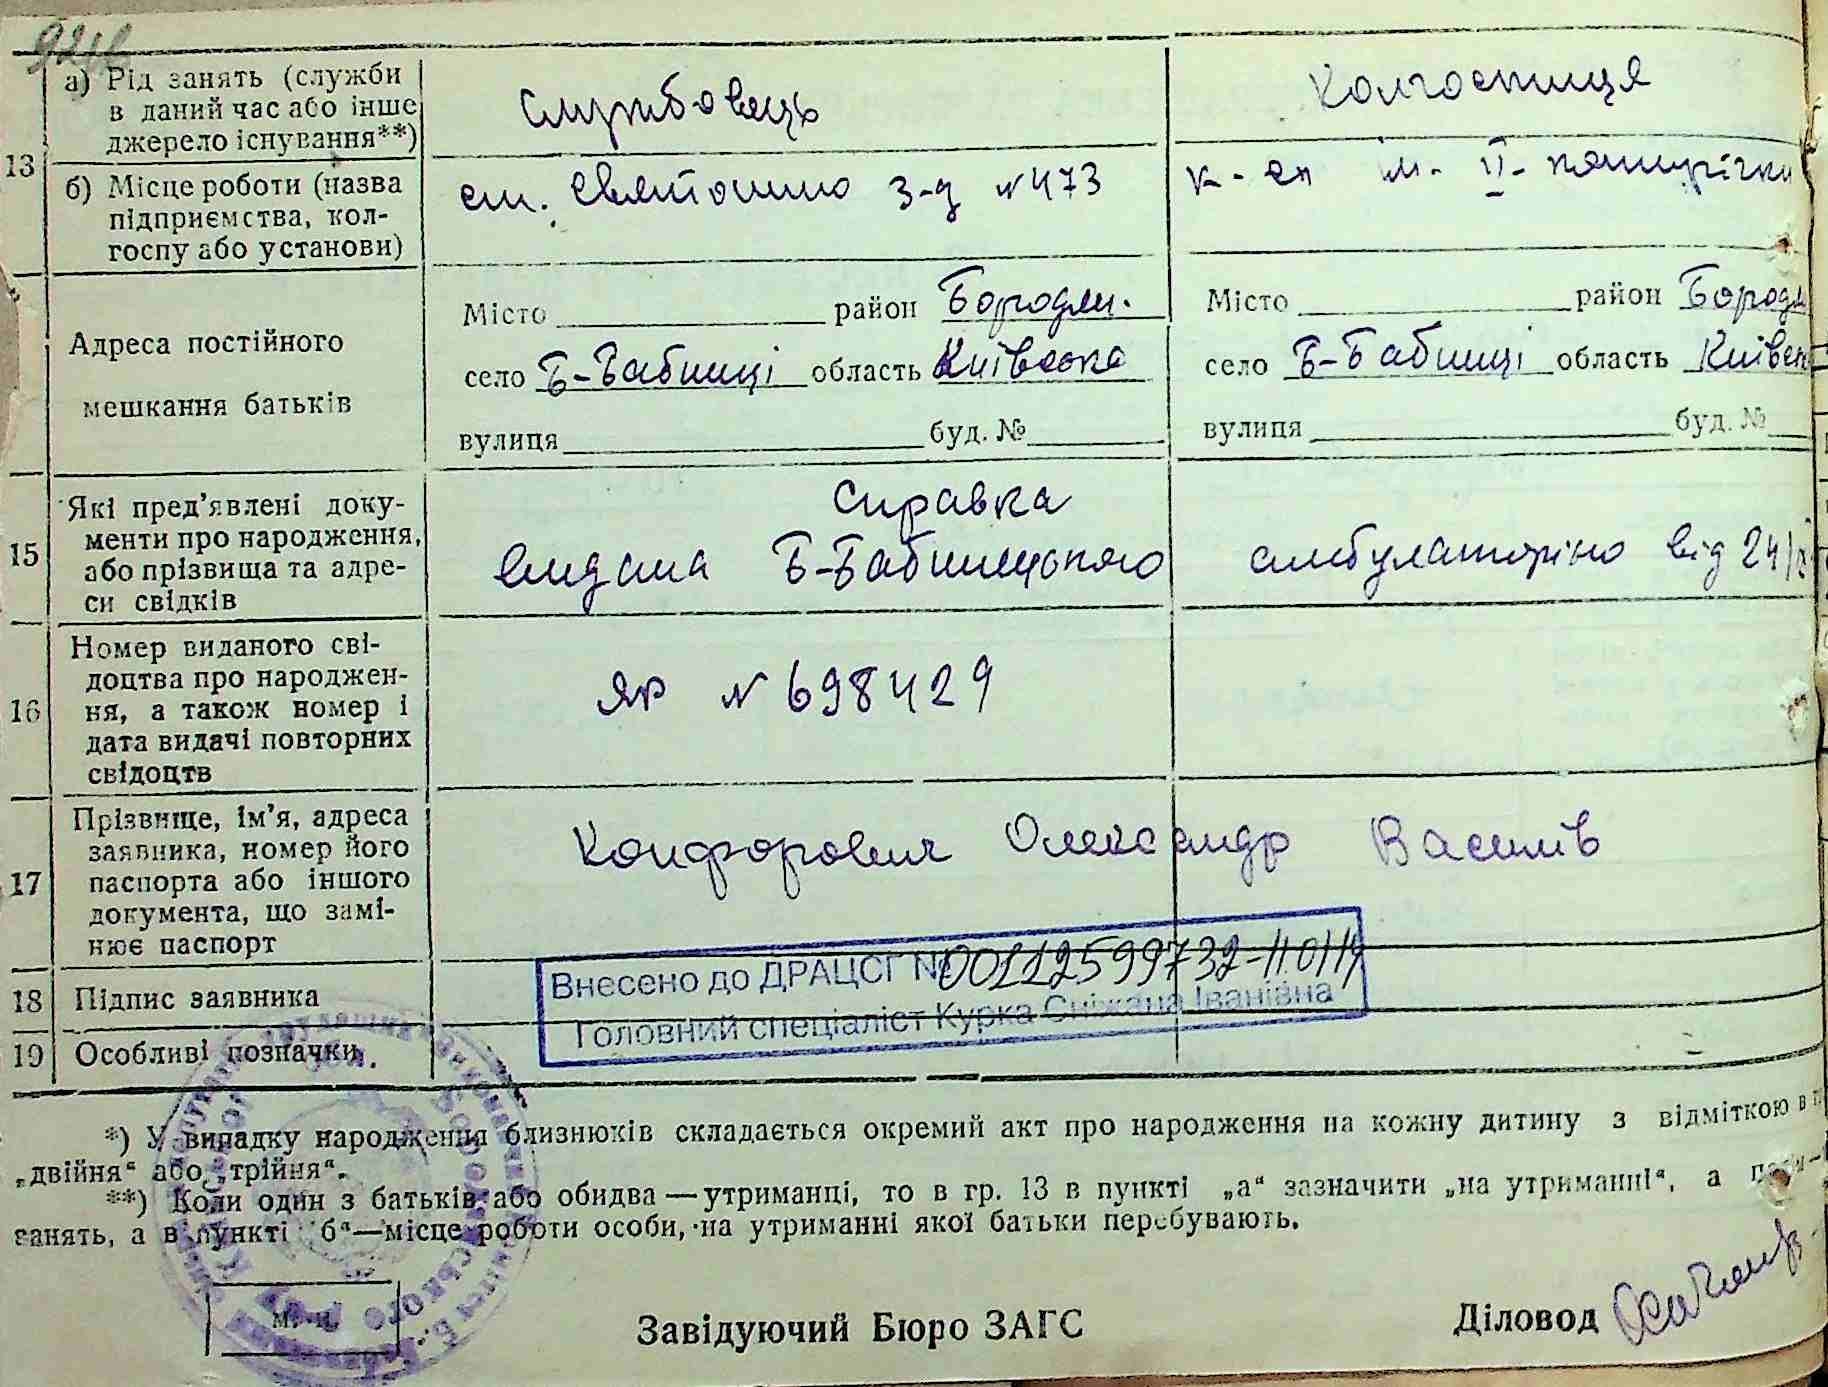 921в
13
а) Рід занять (служби
в даний час або інше
джерело існування**)
Службовець
Колгоспниця
б) Місце роботи (назва
підприємства, кол-
госпу або установи)
ст. Святошино з-д №473
к-сп ім. II-пятирічки
Адреса постійного
мешкання батьків
Місто район Бородян.
село Б-Бабинці область Київська
вулиця буд. №
Місто район Бородян
село Б-Бабинці область Київськ
вулиця буд. №
15
Які пред'явлені доку-
менти про народження,
або прізвища та адре-
си свідків
Справка
видана Б-Бабинецькою амбулаторією від 24/
16
Номер виданого сві-
доцтва про народжен-
ня, а також номер і
дата видачі повторних
свідоцтв
ЯР №698429
17
Прізвище, ім'я, адреса
заявника, номер його
паспорта або іншого
документа, що замі-
нює паспорт
Конфорович Олександр Василів
Внесено до ДРАЦСГ №00112599732-11.01.14
Головний спеціаліст Курка Сніжана Іванівна
18 Підпис заявника
19 Особливі позначки.
*) У випадку народження близнюків складається окремий акт про народження на кожну дитину з відміткою в
„двійня“ або „трійня“.
**) Коли один з батьків або обидва — утриманці, то в гр. 13 в пункті „а“ зазначити „на утриманні“, а
занять, а в пункті „б“—місце роботи особи, на утриманні якої батьки перебувають.
М. П.
Завідуючий Бюро ЗАГС
Діловод